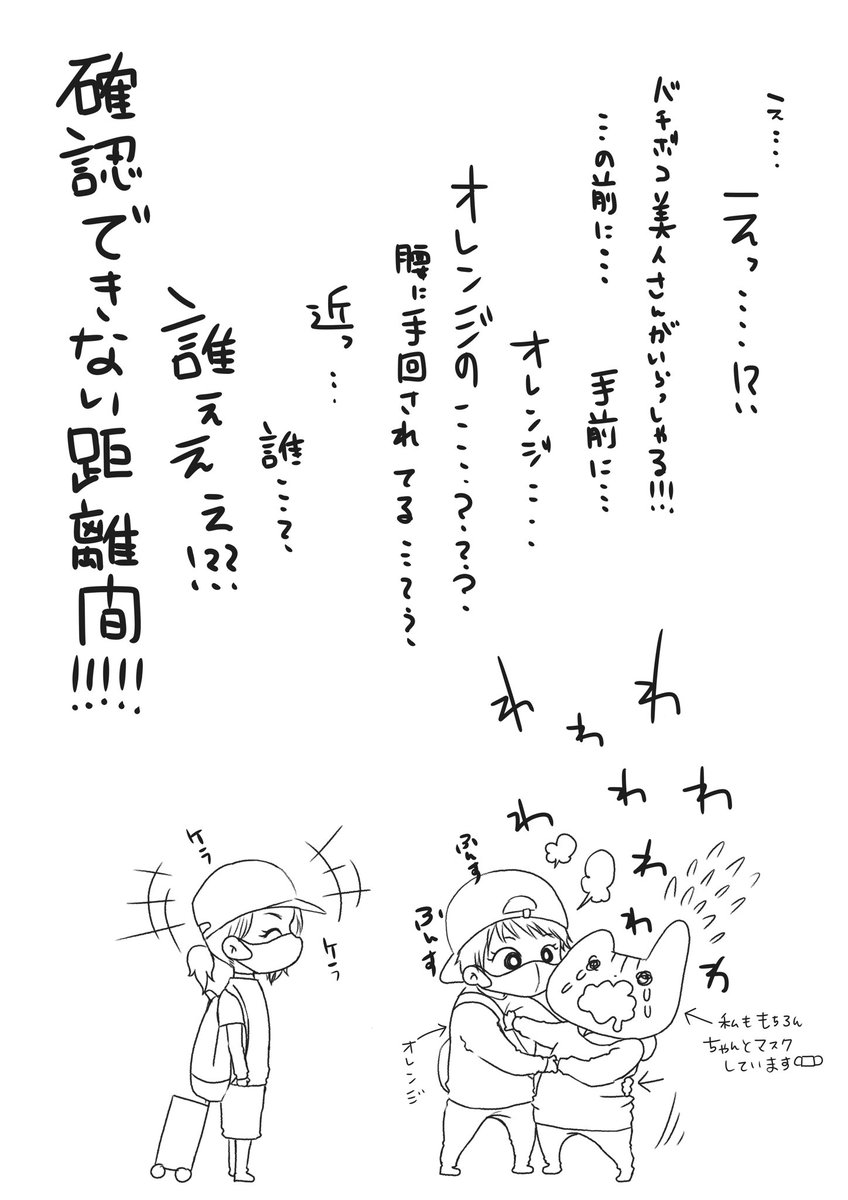 え…
えっ……!?
バチボコ美人さんがいらっしゃる!!!
…の前に…
手前に…
オレンジ…
オレンジの……???
腰に手回されてる…てぅ?
近っ…
誰…?
誰ぇえぇ!???
確認できない距離間!!!!!
わ
わ
わ
わ
わ
わ
わ
わ
わ
ふんす
ふんす
オレンジ
私ももちろん
ちゃんとマスク
しています
ケラ
ケラ